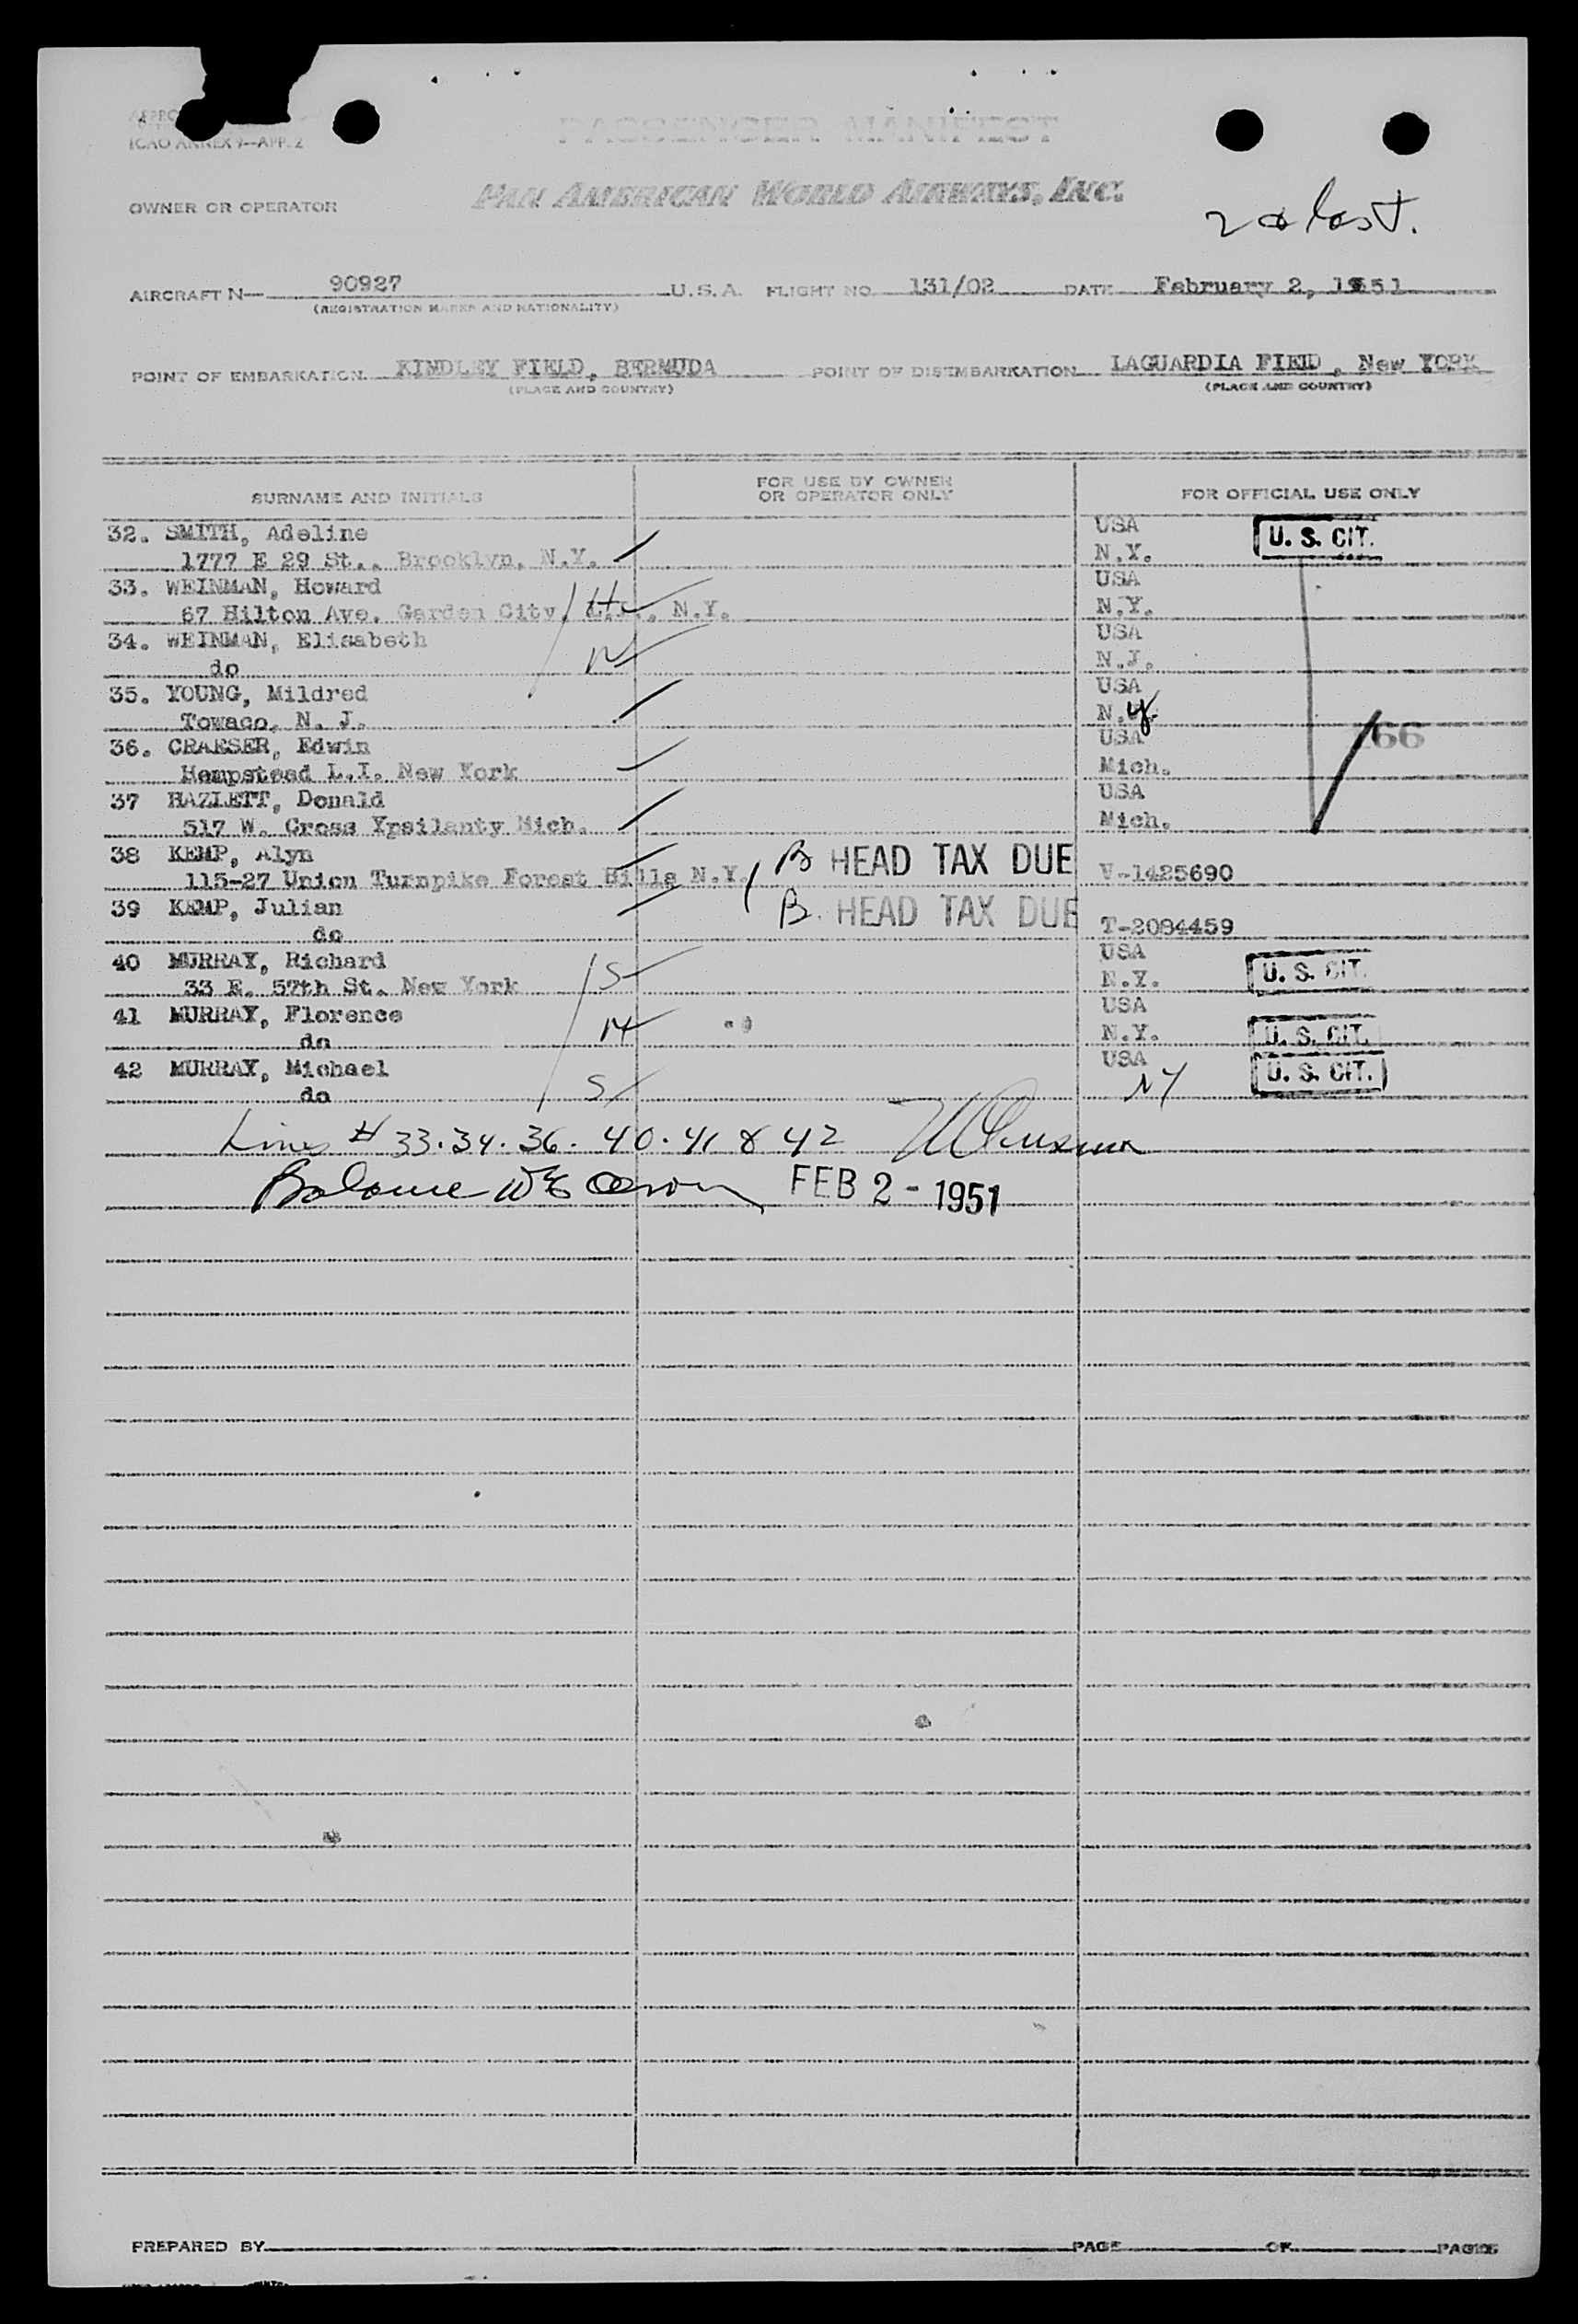 ICAO ANNEX 9—APP. 2
PASSENGER MANIFEST
OWNER OR OPERATOR PAN AMERICAN WORLD AIRWAYS, INC.
AIRCRAFT N— 90927 U.S.A. FLIGHT NO. 131/02 DATE February 2, 1951
(REGISTRATION MARKS AND NATIONALITY)
POINT OF EMBARKATION KINDLEY FIELD, BERMUDA POINT OF DISEMBARKATION LAGUARDIA FIELD, New YORK
(PLACE AND COUNTRY) (PLACE AND COUNTRY)
SURNAME AND INITIALS FOR USE BY OWNER OR OPERATOR ONLY FOR OFFICIAL USE ONLY
32. SMITH, Adeline USA U. S. CIT.
1777 E 29 St., Brooklyn, N.Y. N.Y.
33. WEINMAN, Howard USA
67 Hilton Ave. Garden City, L.I., N.Y. N.Y.
34. WEINMAN, Elisabeth USA
do N.J.
35. YOUNG, Mildred USA
Towaco, N. J. N.Y.
36. CRAESER, Edwin USA 66
Hempstead L.I. New York Mich.
37 HAZLETT, Donald USA
517 W. Cross Ypsilanty Mich. Mich.
38 KEMP, Alyn B HEAD TAX DUE
115-27 Union Turnpike Forest Hills N.Y. V-1425690
39 KEMP, Julian B. HEAD TAX DUE
do T-2084459
40 MURRAY, Richard USA U. S. CIT.
33 E. 57th St. New York S N.Y.
41 MURRAY, Florence USA
do M N.Y. U. S. CIT.
42 MURRAY, Michael USA U. S. CIT.
do S NY
Lines # 33.34.36. 40.41 & 42
Balance FEB 2 - 1951
PREPARED BY PAGE OF PAGES